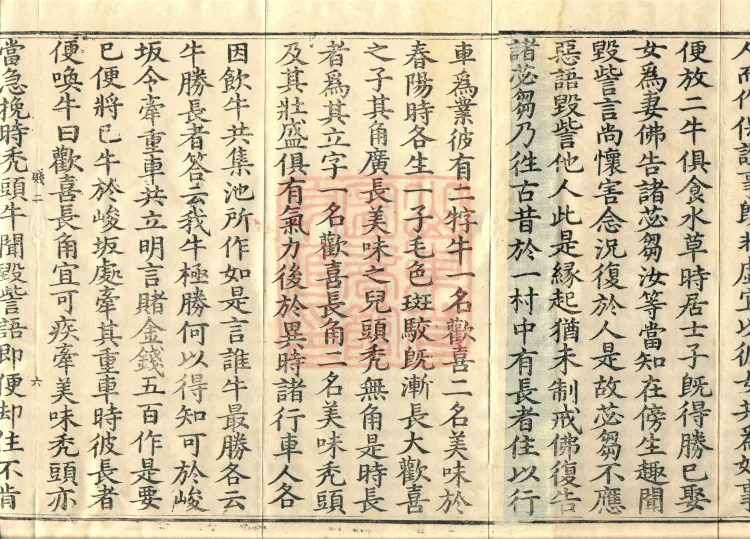 便放二牛俱食水草時居士子旣得勝已娶
女爲妻佛告諸苾芻汝等當知在傍生趣聞
毀訾言尚懷害念況復於人是故苾芻不應
惡語毀訾他人此是緣起猶未制戒佛復告
諸苾芻乃往古昔於一村中有長者住以行
車爲業彼有二牸牛一名歡喜二名美味於
春陽時各生一子毛色斑駮旣漸長大歡喜
之子其角廣長美味之兒頭禿無角是時長
者爲其立字一名歡喜長角二名美味禿頭
及其壯盛俱有氣力後於異時諸行車人各
因飲牛共集池所作如是言誰牛最勝各云
牛勝長者答云我牛極勝何以得知可於峻
坂令牽重車共立明言賭金錢五百作是要
已便將已牛於峻坂處牽其重車時彼長者
便喚牛曰歡喜長角宜可疾牽美味禿頭亦
二 六
當急挽時禿頭牛聞毀訾語即便却住不肯